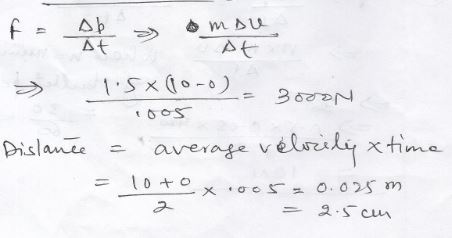 f = Δp/Δt => mΔU/Δt
=> 1.5×(10-0)/.005 = 3000N
Distance = average velocity × time
= 10+0/2 × .005 = 0.025 m
= 2.5 cm